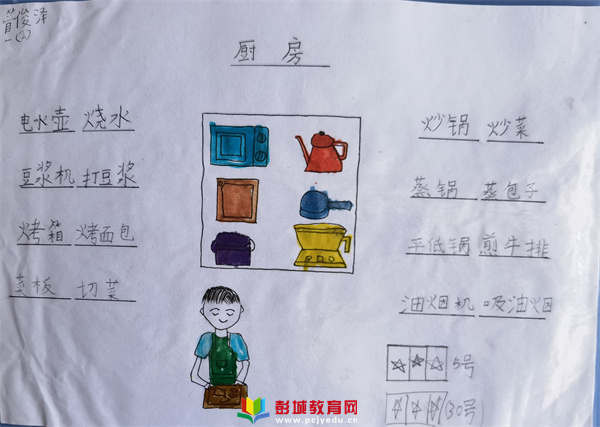 管俊泽
一(2)
厨房
电水壶 烧水
豆浆机 打豆浆
烤箱 烤面包
菜板 切菜
炒锅 炒菜
蒸锅 蒸包子
平低锅 煎牛排
油烟机 吸油烟
5号
(30号)
彭城教育网
www.pcjyedu.cn